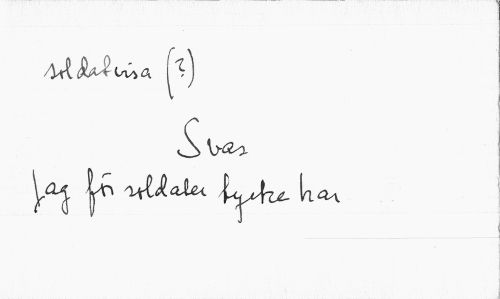 soldatvisa (?)
Svar
Jag för soldater tycke har